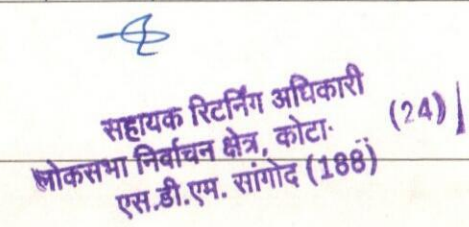 सहायक रिटर्निंग अधिकारी
लोकसभा निर्वाचन क्षेत्र, कोटा. (24)
एस.डी.एम. सांगोद (188)